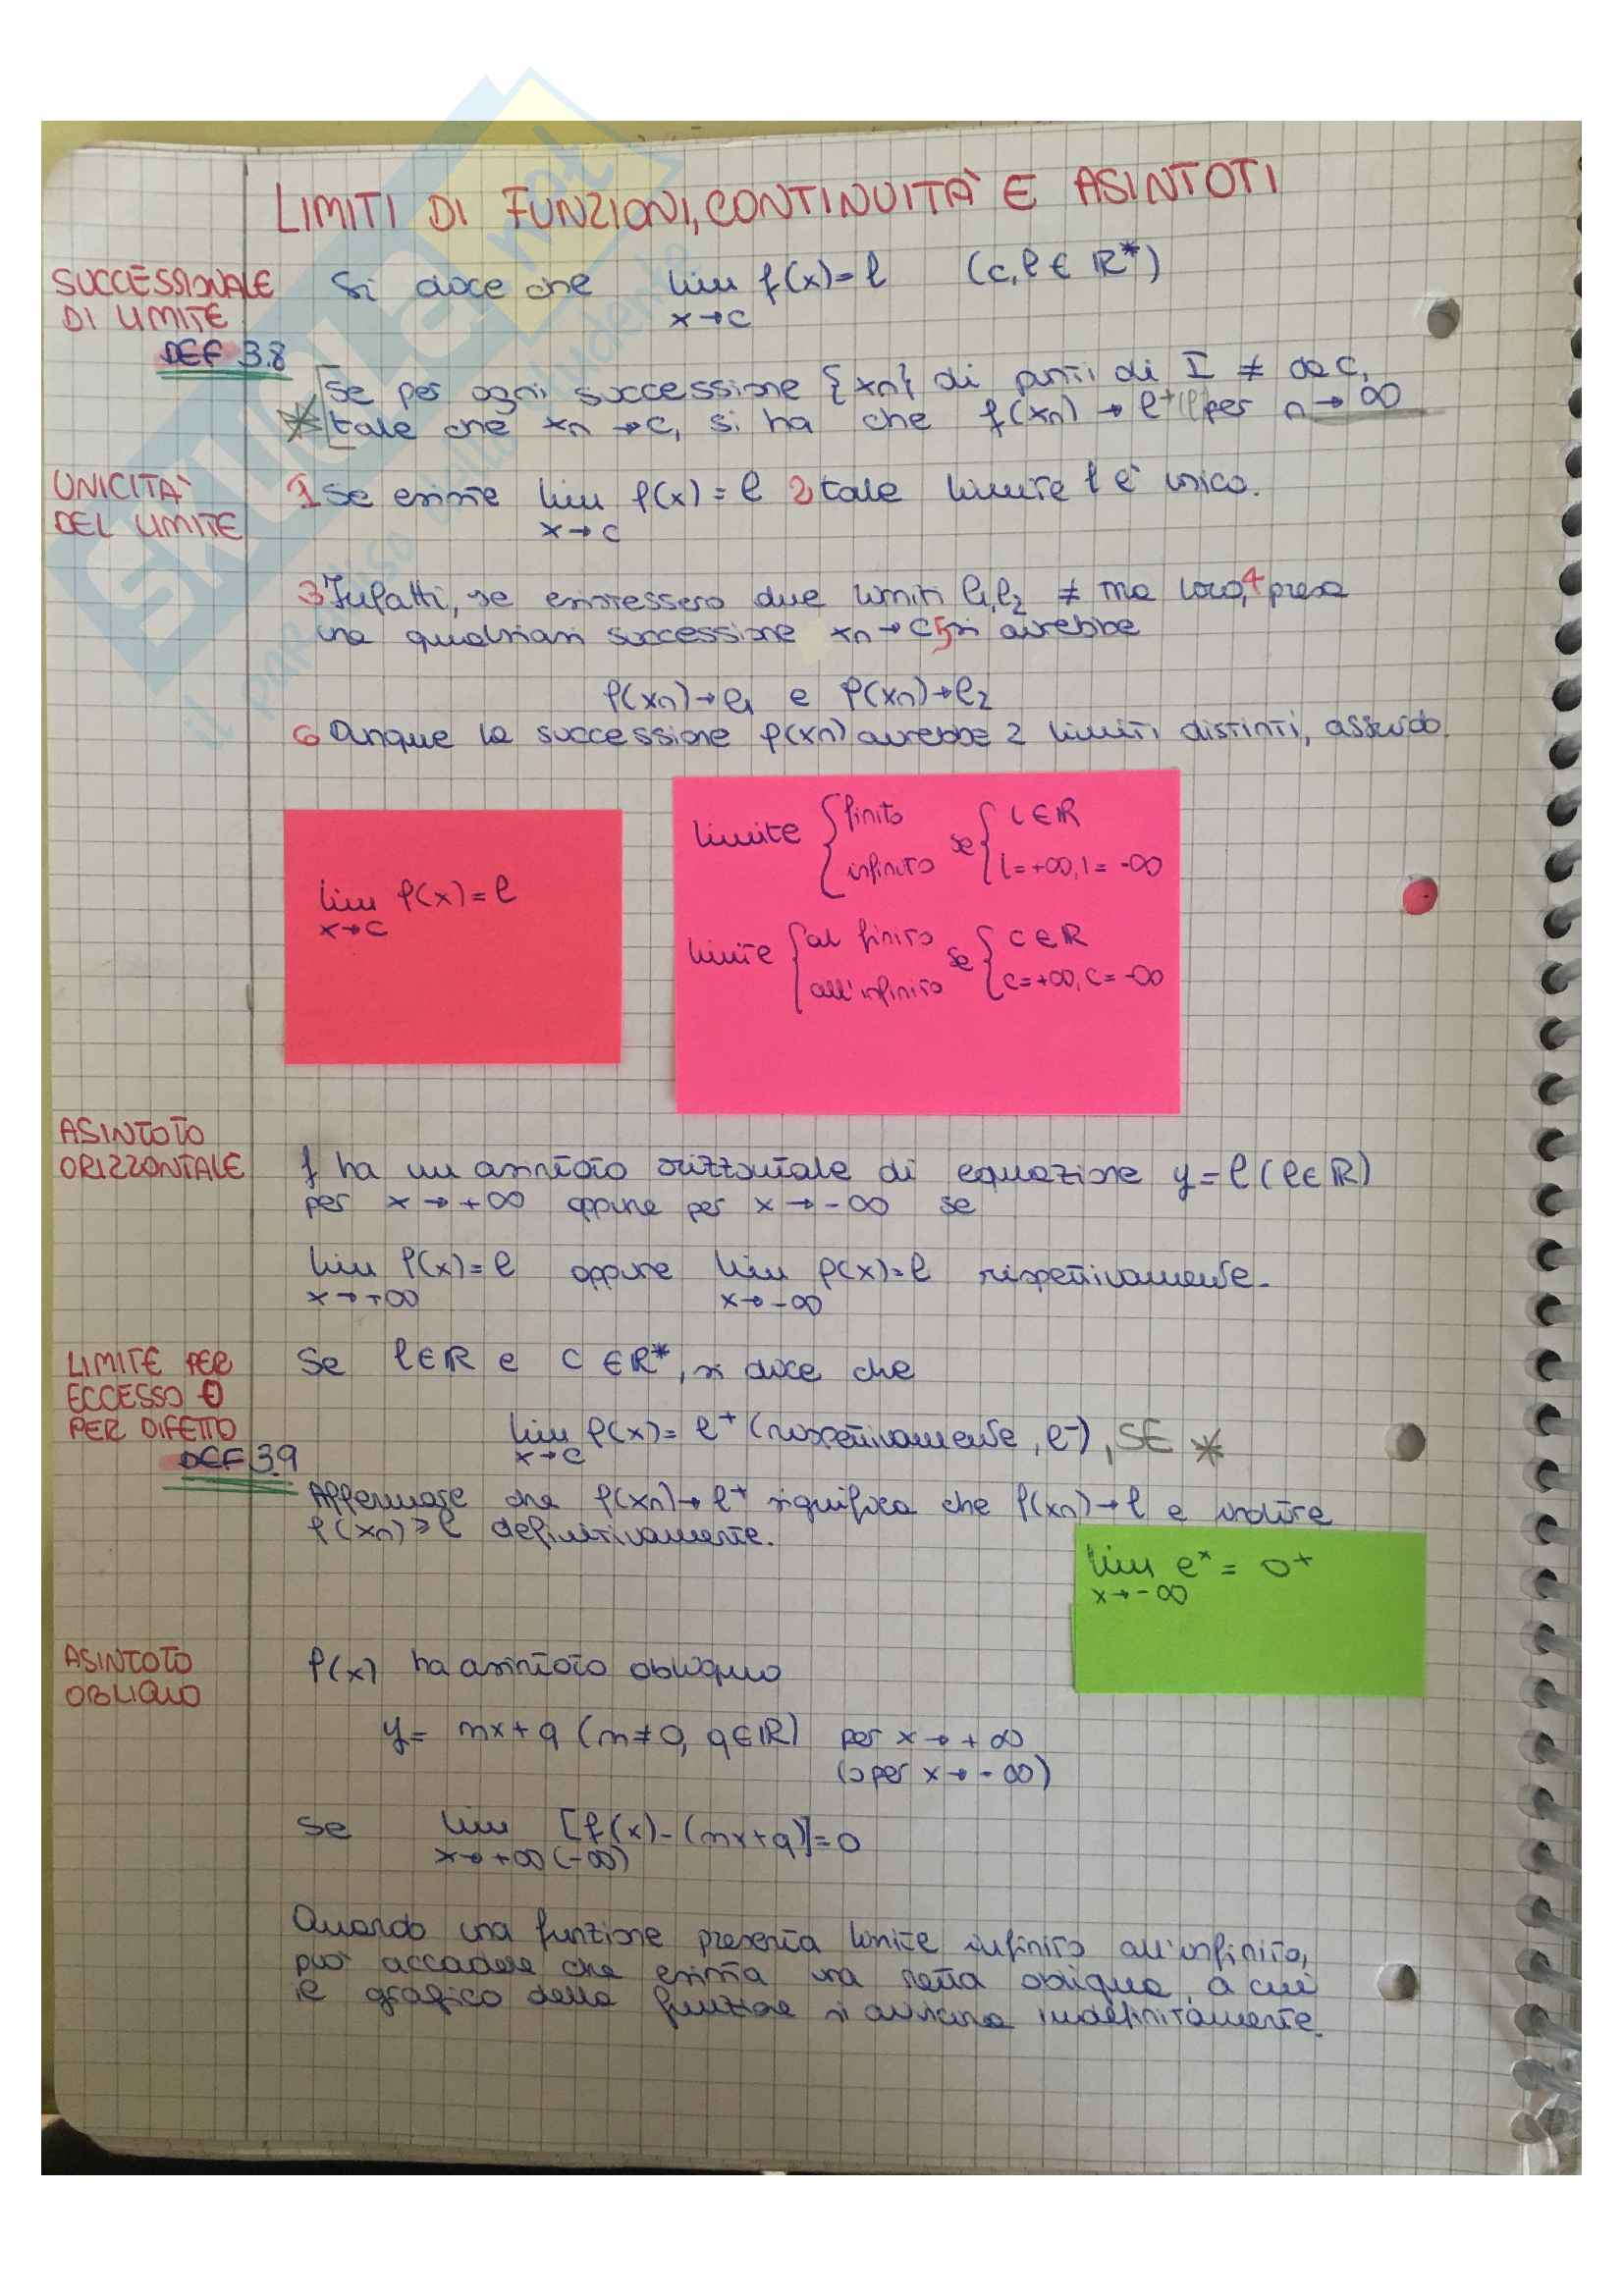 LIMITI DI FUNZIONI, CONTINUITÀ E ASINTOTI
SUCCESSIONALE
DI LIMITE
DEF 3.8
Si dice che lim f(x) = l (c, l ∈ ℝ*)
x→c
Se per ogni successione {xn} di punti di I ≠ da c,
* tale che xn → c, si ha che f(xn) → l⁺ per n → ∞
UNICITA'
DEL LIMITE
1 Se esiste lim f(x) = l 2 tale limite l è unico.
x→c
3 Infatti, se esistessero due limiti l1, l2 ≠ tra loro, 4 presa
una qualsiasi successione xn → c 5 si avrebbe
f(xn) → l1 e f(xn) → l2
6 Dunque la successione f(xn) avrebbe 2 limiti distinti, assurdo.
lim f(x) = l
x→c
limite { finito se { l ∈ ℝ
infinito l = +∞, l = -∞
limite { al finito se { c ∈ ℝ
all'infinito c = +∞, c = -∞
ASINTOTO
ORIZZONTALE
f ha un asintoto orizzontale di equazione y = l (l ∈ ℝ)
per x → +∞ oppure per x → -∞ se
lim f(x) = l oppure lim f(x) = l rispettivamente.
x→+∞ x→-∞
LIMITE PER
ECCESSO O
PER DIFETTO
DEF 3.9
Se l ∈ ℝ e c ∈ ℝ*, si dice che
lim f(x) = l⁺ (rispettivamente, l⁻), SE *
x→c
Affermare che f(xn) → l⁺ significa che f(xn) → l e inoltre
f(xn) ≥ l definitivamente.
lim eˣ = 0⁺
x→-∞
ASINTOTO
OBLIQUO
f(x) ha asintoto obliquo
y = mx + q (m ≠ 0, q ∈ ℝ) per x → +∞
(o per x → -∞)
Se lim [f(x) - (mx+q)] = 0
x→+∞ (-∞)
Quando una funzione presenta limite infinito all'infinito,
può accadere che esista una retta obliqua, a cui
il grafico della funzione si avvicina indefinitamente.
skuola.net
il paradiso dello studente